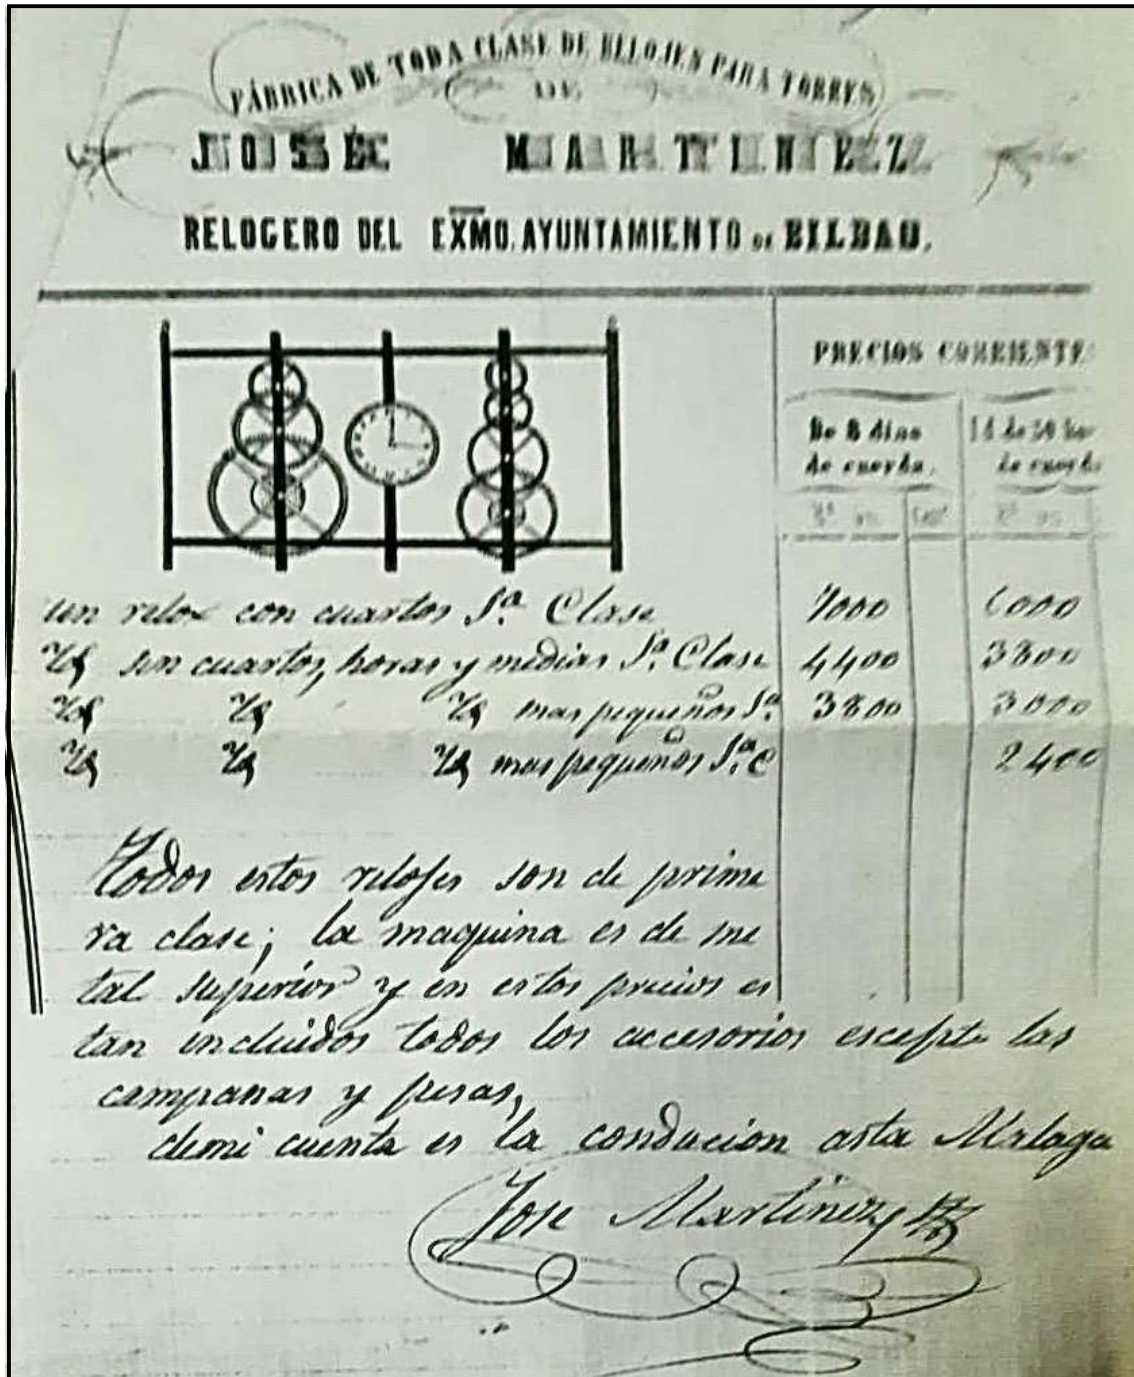 FÁBRICA DE TODA CLASE DE RELOJES PARA TORRES
DE
JOSÉ MARTINEZ
RELOGERO DEL EXMO. AYUNTAMIENTO DE BILBAO.
PRECIOS CORRIENTE
De 8 dias
de cuerda.
de cuerda
un relox con cuartos 1ª Clase 7000 6000
Yd sin cuartos, horas y medias 1ª Clase 4400 3800
Yd Yd Yd mas pequeños 1ª 3800 3000
Yd Yd Yd mas pequeños 1ª C 2400
Todos estos relojes son de prime
ra clase; la maquina es de me
tal superior y en estos precios es
tan incluidos todos los accesorios escepto las
campanas y pesas,
demi cuenta es la conducion asta Malaga
Jose Martinez